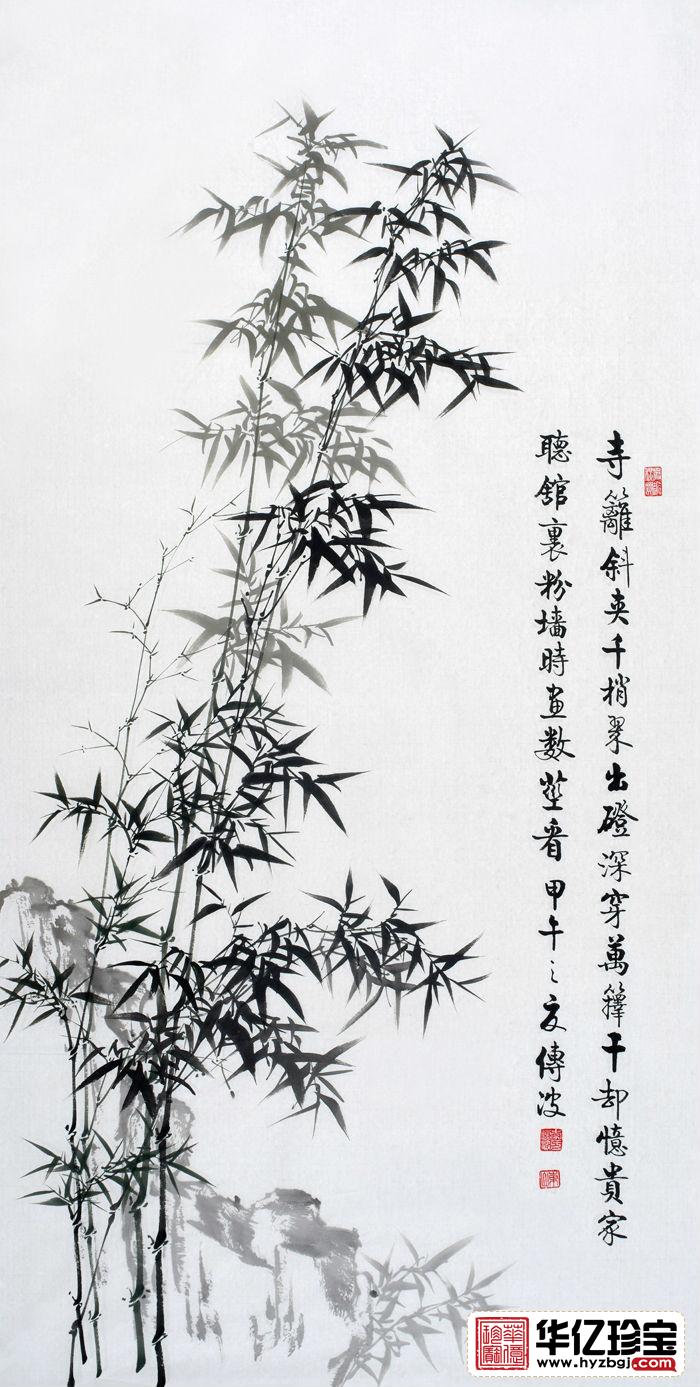 寺籬斜夾千梢翠出磴深穿萬籜干却憶貴家
聽舘裏粉墻時畫數莖看甲午之夏傳波
华亿珍宝
www.hyzbgj.com